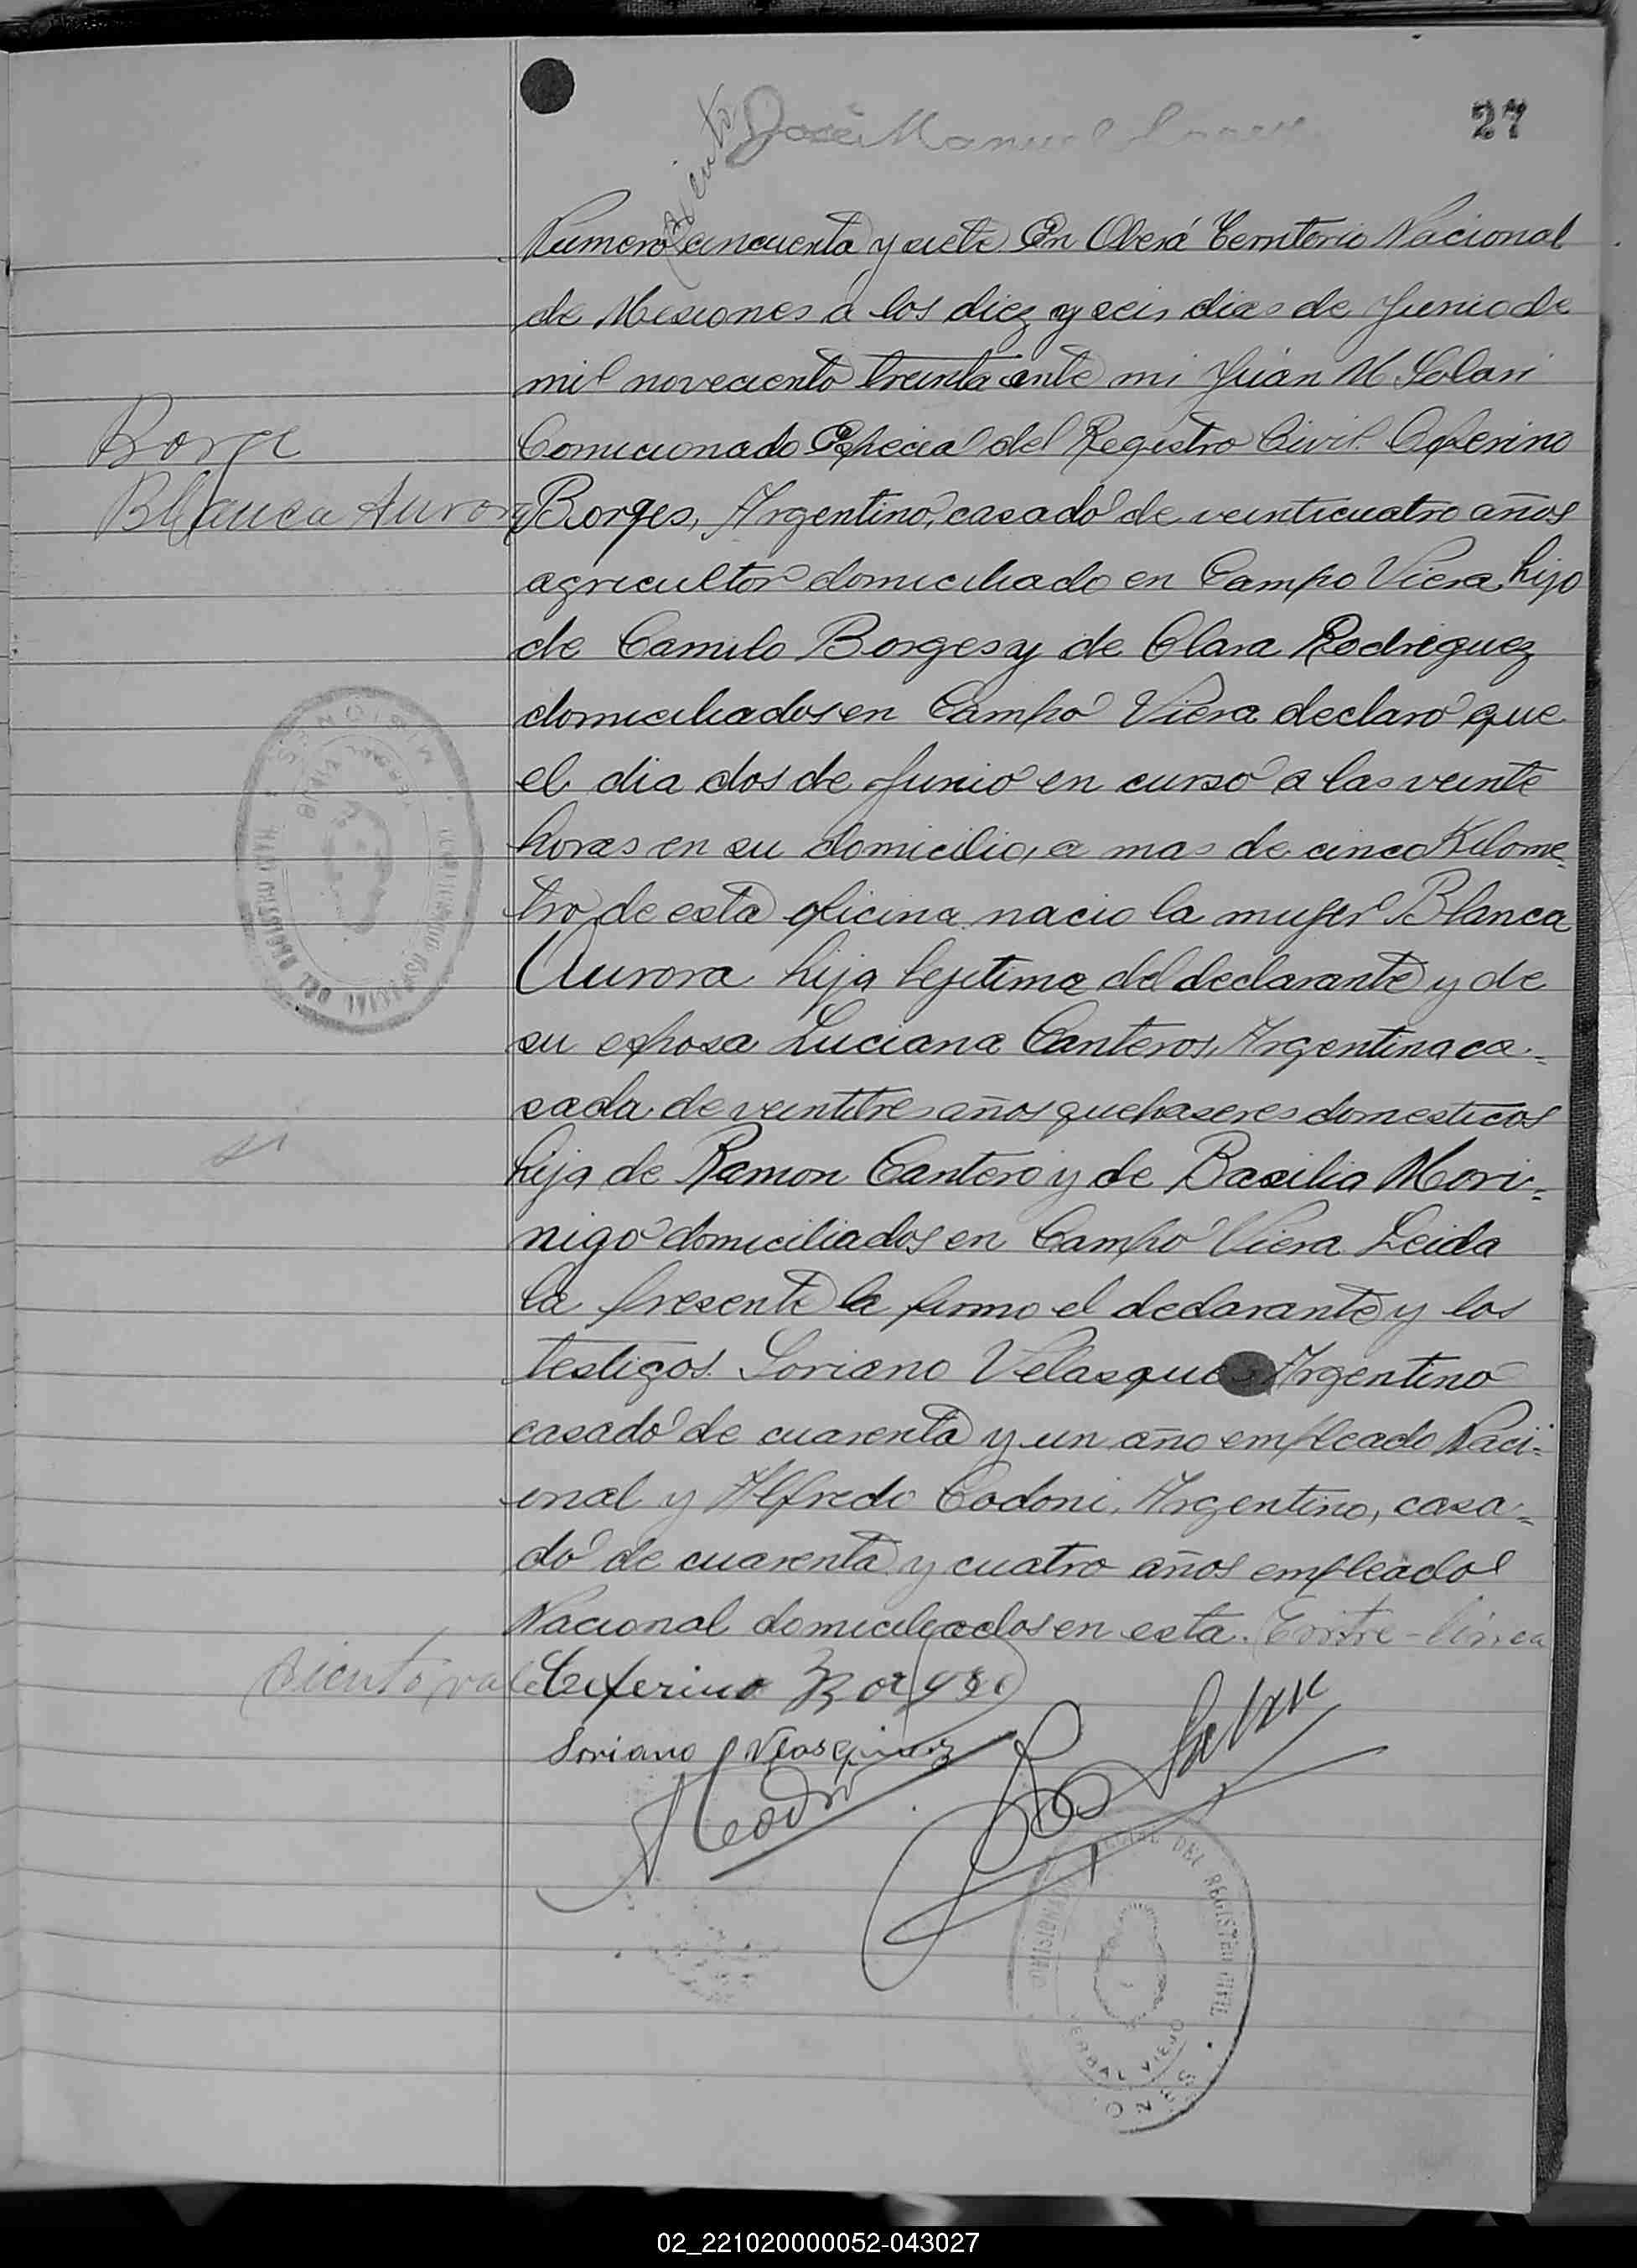 27
José Manuel
ciento
Numero cincuenta y siete En Oberá Territorio Nacional
de Misiones a los diez y seis dias de Junio de
mil noveciento treinta ante mi Juan M. Solari
Comicionado Especial del Registro Civil. Ceferino
Borge
Blanca Aurora
Borges, Argentino, casado de veinticuatro años
agricultor domiciliado en Campo Viera, hijo
de Camilo Borges y de Clara Rodriguez
domiciliados en Campo Viera declaro que
el dia dos de Junio en curso a las veinte
horas en su domicilio, a mas de cinco Kilome=
tro de esta oficina nacio la mujer Blanca
Aurora hija lejitima del declarante y de
su esposa Luciana Canteros, Argentina ca=
sada de veintitres años quehaseres domesticos
hija de Ramon Cantero y de Basilia Mori=
nigo domiciliados en Campo Viera Leida
la presente la firmo el declarante y los
testigos. Soriano Velasques Argentino
casado de cuarenta y un año empleado Naci=
onal y Alfredo Codoni, Argentino, casa=
do de cuarenta y cuatro años empleado
Nacional domiciliados en esta. Entre-linea
ciento, vale
Ceferino Borges
Soriano Velasquez
MISIONES
COMISIONADO ESPECIAL DEL REGISTRO CIVIL
YERBAL VIEJO
DEL REGISTRO CIVIL
YERBAL VIEJO
02_221020000052-043027